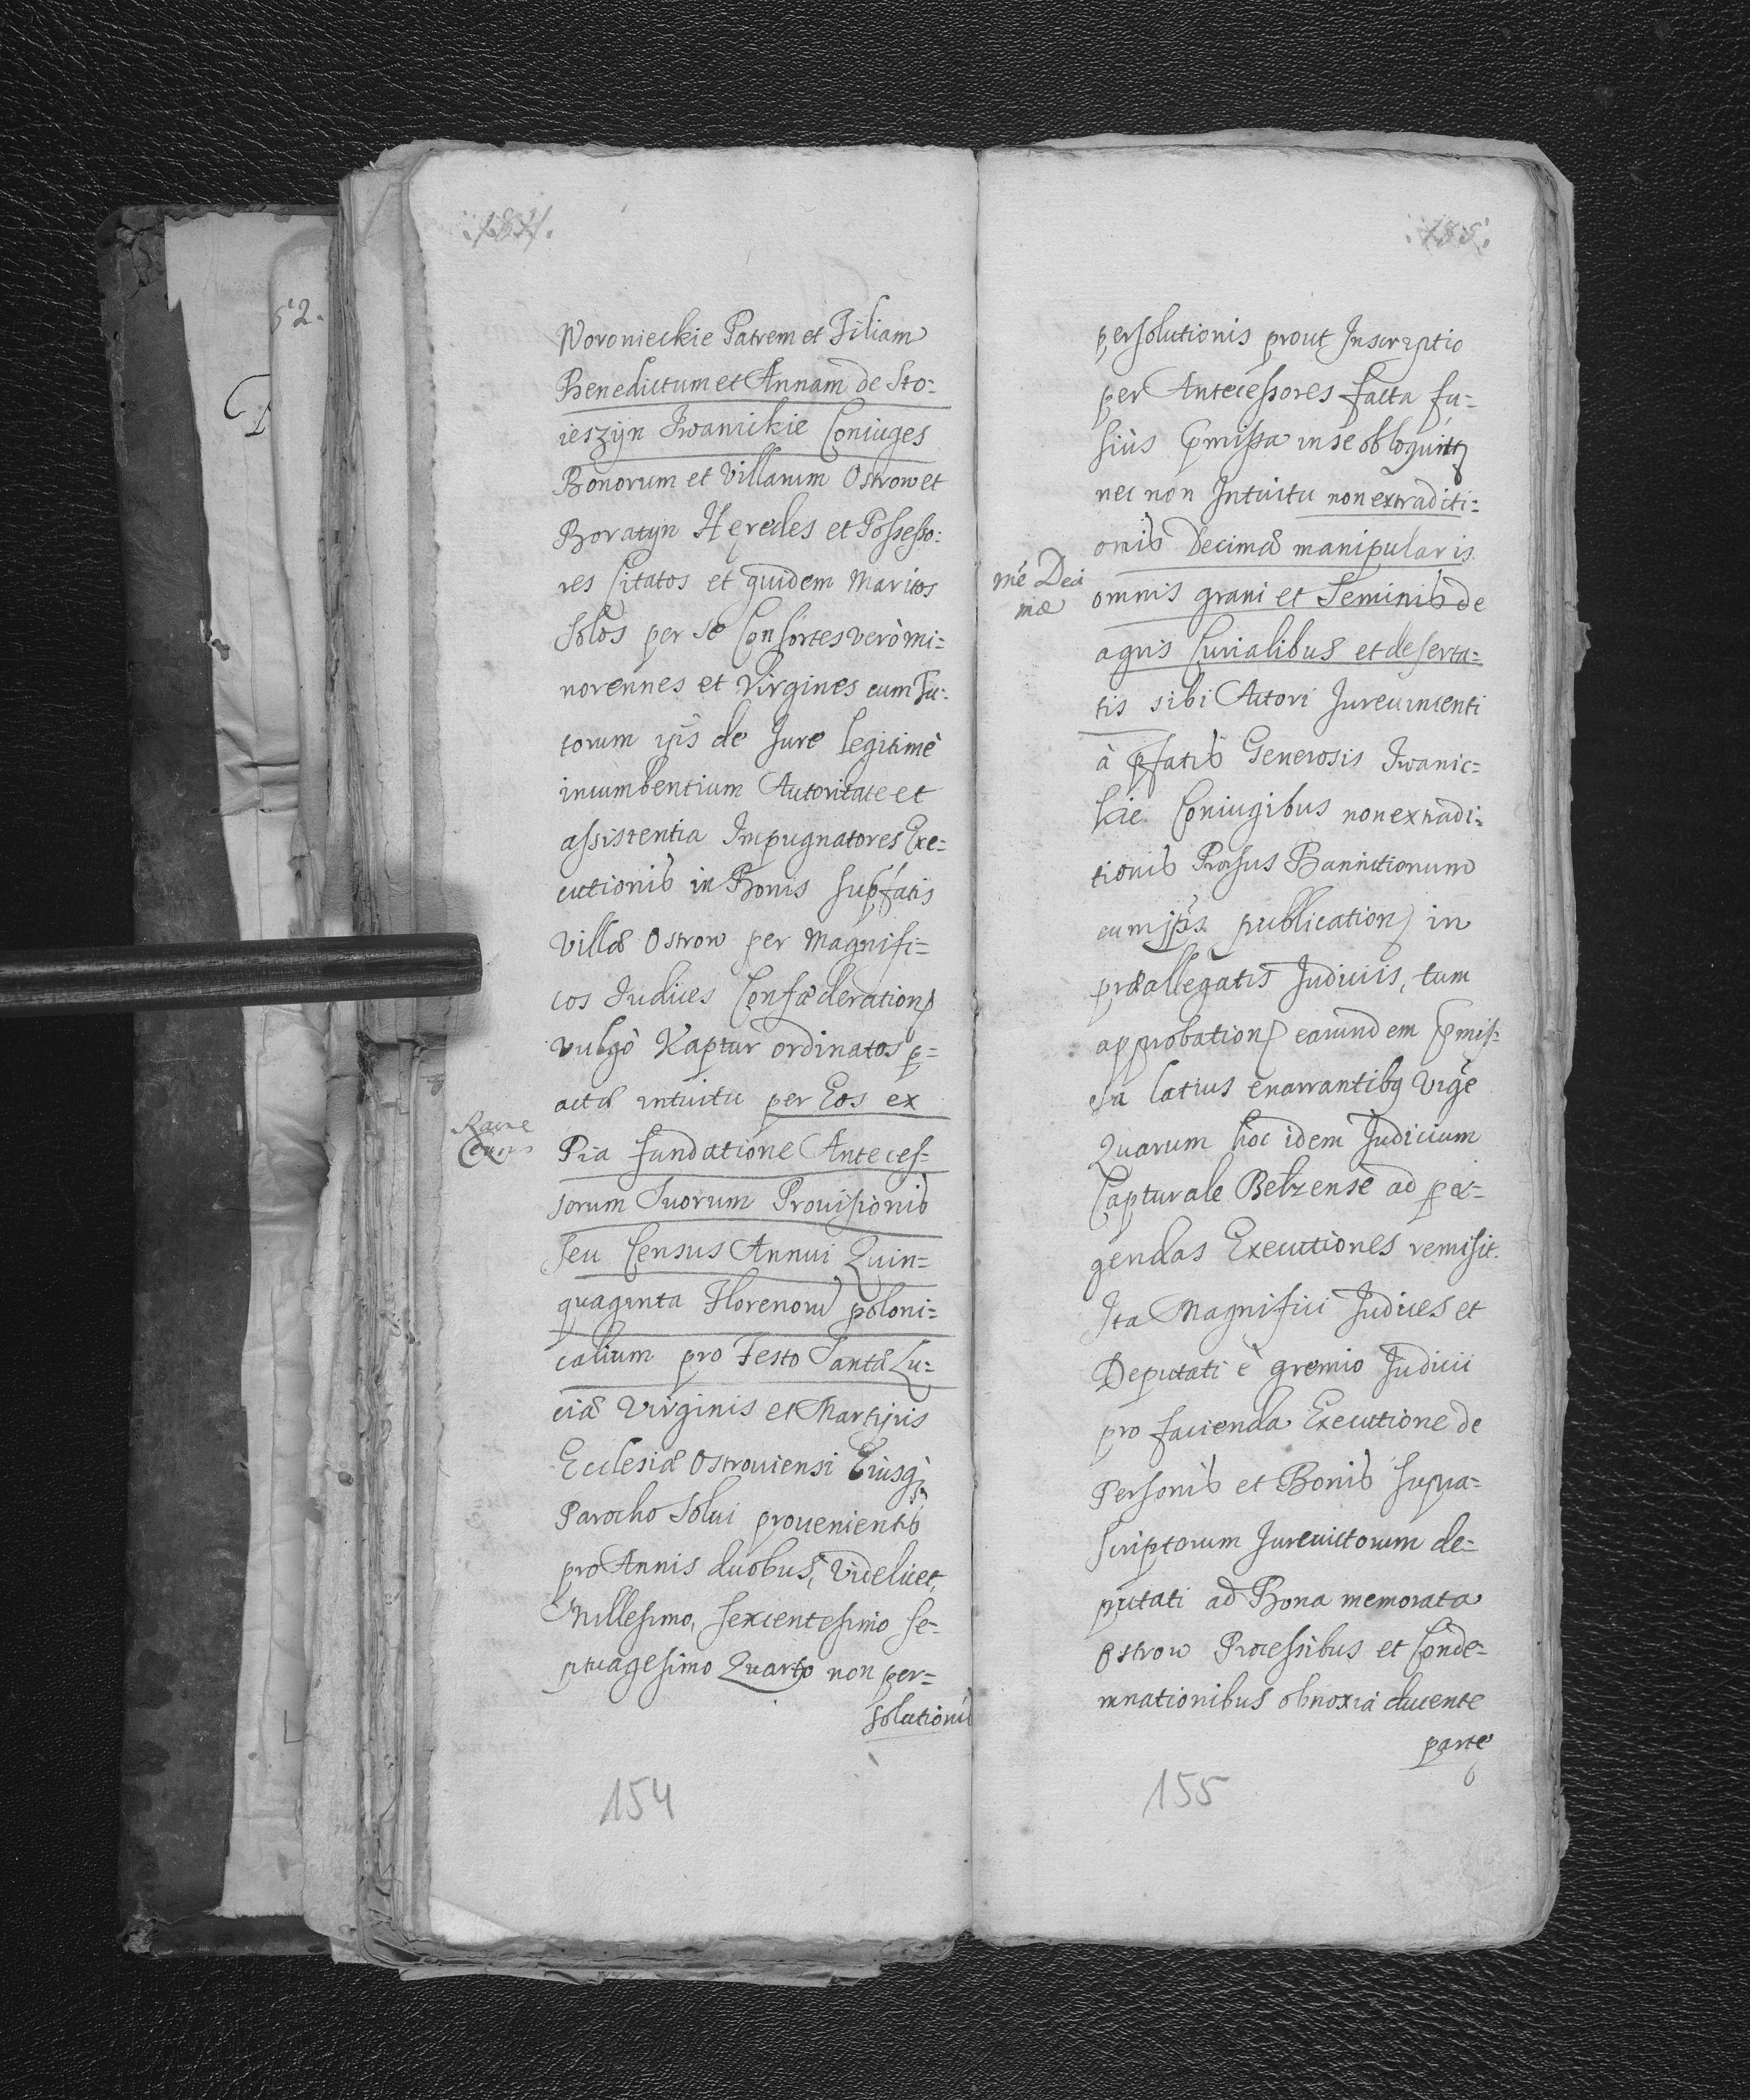 52.
Woronieckie Patrem et Filiam
Benedictum et Annam de Sto=
ieszyn Iwanickie Coniuges
Bonorum et Villarum Ostrow et
Boratyn Hęredes et Possesso:
res Citatos et quidem Maritos
Solos per se Consortes verò mi=
norennes et Virgines cum Tu:
torum ijs de Jure legitimè
incumbentium Autoritate et
assistentia Impugnatores Exe=
cutionis in Bonis supfatis
Villæ Ostrow per Magnifi=
cos Judices Confæderation
vulgò Kaptur ordinatos p=
actæ intuitu per Eos ex
Pia fundatione Anteces=
sorum Suorum Prouisionis
seu Census Annui Quin=
quaginta Florenoru poloni=
calium pro Festo Santæ Lu=
ciæ Virginis et Martyris
Ecclesiæ Ostrouiensi Eiusq
Parocho Solui prouenientis
pro Annis duobus, Videlicet,
Millesimo, Sexcentesimo Se=
ptuagesimo Quarto non per=
solutionis
Census
154
persolutionis prout Inscriptio
per Antecessores facta fu=
siùs pmissa in se obloquitr
nec non Intuitu non extraditi=
onis Decimæ manipularis
omnis grani et Seminis de
agris Curialibus et deserta=
tis sibi Actori Jureuincenti
à pfatis Generosis Iwanic=
kie Coniugibus non extradi=
tionis Prorsus Bannitionum
cum ipsis publication in
præallegatis Judicijs, tum
approbation earundem pmis=
sa latius enarrantibq Vige
Quarum hoc idem Judicium
Capturale Belzense ad pa=
gendas Executiones remisit.
Ita Magnifici Judices et
Deputati è gremio Judicii
pro facienda Executione de
Personis et Bonis supra=
scriptorum Jureuictorum de=
putati ad Bona memorata
Ostrow Processibus et Conde=
mnationibus obnoxia ducente
parte
mé Deci
mæ
155